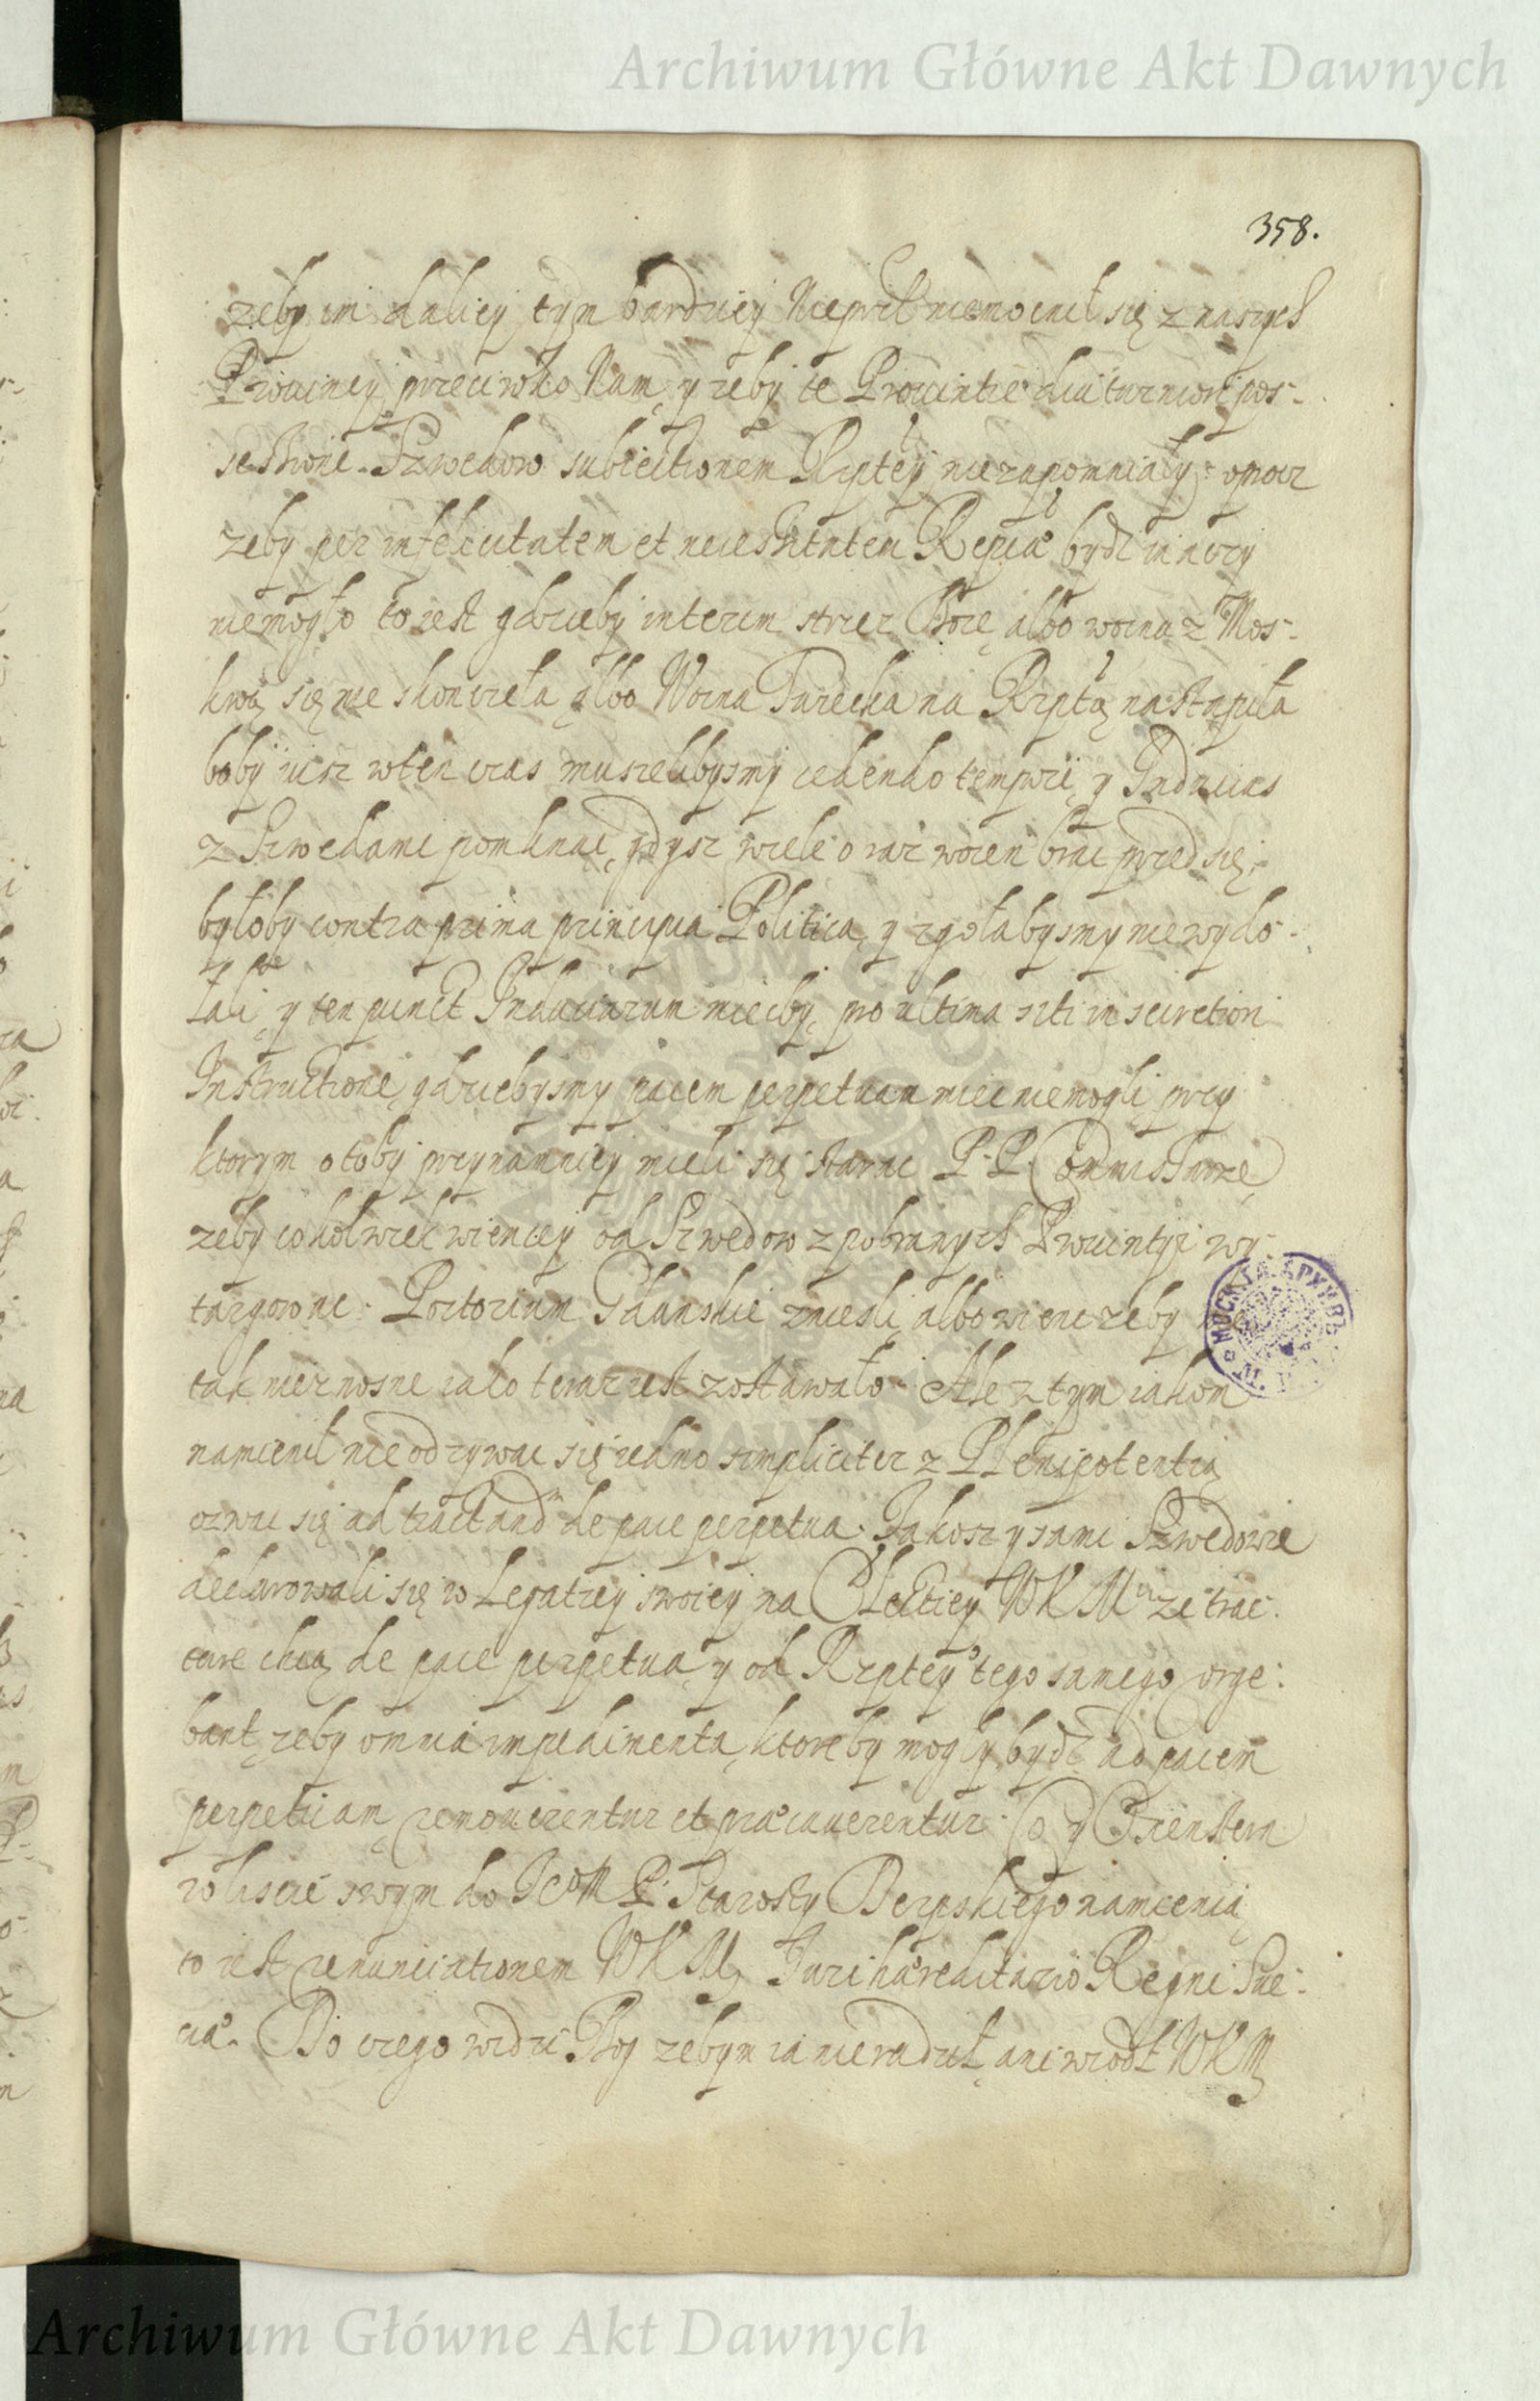 Archiwum Główne Akt Dawnych
358.
zeby im daliey tym bardziey Nieprzl niemocnil się z naszych
Prouincy przeciwko Nam, y zeby te Prouintie diuturniori pos-
sessione Szwedow subiectionem Rzptey niezapomniały: oprocz
zeby per infelicitatem et necessitatem Reipcae bydz inaczy
niemogło to iest gdzieby interim strzez Boze, albo woina z Mos-
kwą się nie skonczeła, albo Woina Turecka na Rzptą nastąpiła
boby iusz w ten czas muszelibysmy cedendo tempori, y Inducias
z Szwedami pomknąc, gdysz wiele oraz woien brac przed się,
byłoby contra prima principia Politica, y zgołabysmy niewydo-
łali, y ten punct Induciarum mieċby, pro ultima siti in secretiori
Instructione, gdziebysmy pacem perpetuam miec niemogli przy
ktorym o toby przynamniey mieli się starac P. P. Commissarze,
zeby cokolwiek wiencey od Szwedow z pobranych Prouintyi wy-
targowac. Portorium Gdanskie zniesli, albo wiec zeby nie
tak nieznosne iako teraz iest zostawało. Ale z tym iakom
namienil nie odzywac się iedno simpliciter z Plenipotentią
ozwac się ad tractandm de pace perpetua. Jakosz y sami Szwedowie
declarowali się w Legatiey swoiey na Elektiey WKMci ze trac-
tare chcą de pace perpetua, y od Rzptey tego samego vrge-
bant, zeby omnia impedimenta, ktoreby mogły bydz ad pacem
perpetuam, remouerentur et praecauerentur. Co y Oxenstern
w liscie swym do JeoM P. Starosty Derpskiego namienia,
to iest renunciationem WKM, Juri haereditario Regni Sue-
ciae. Do czego widzi Bog zebym ia nieradził, ani wiodł WKM
Archiwum Główne Akt Dawnych